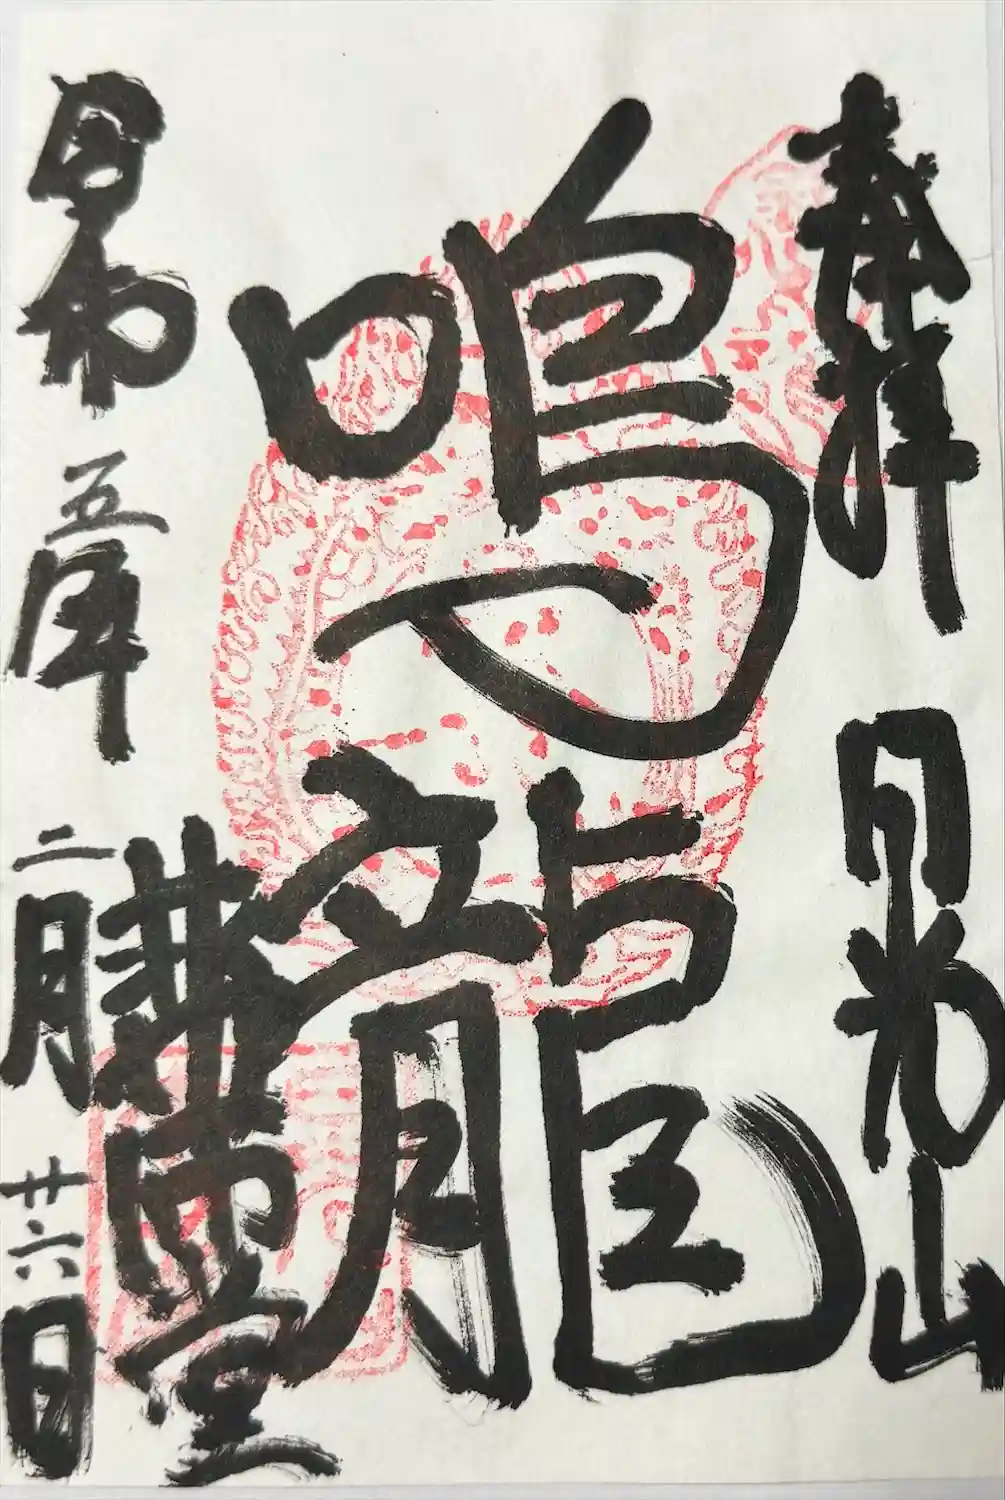 奉拝 日光山
鳴龍
薬師堂
令和五年二月廿六日